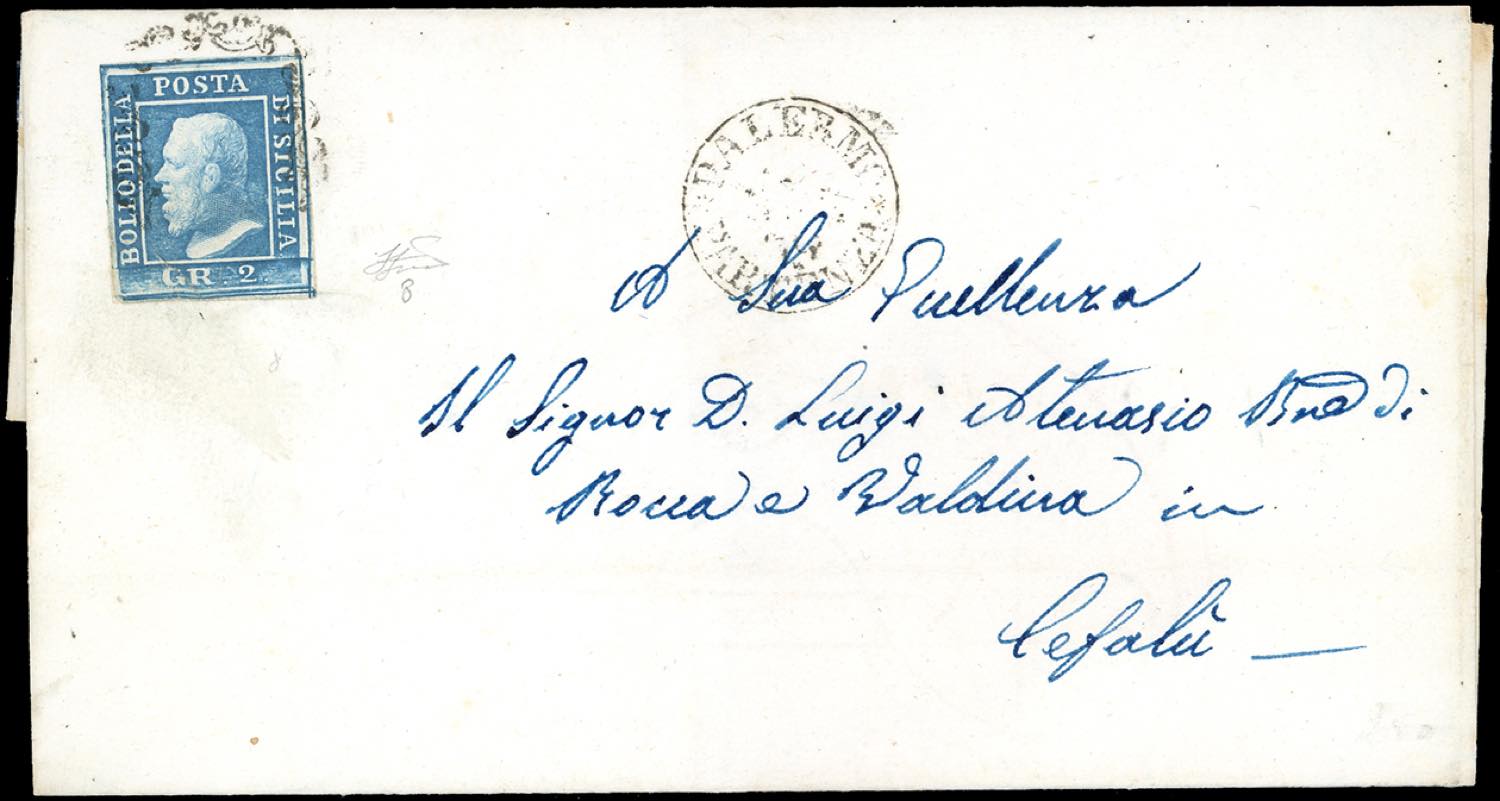 POSTA
BOLLO DELLA
DI SICILIA
GR. 2
PALERMO
PARTENZA
8
8
A Sua Eccellenza
Il Signor D. Luigi Atenasio di
Rocca e Valdina in
Cefalù —